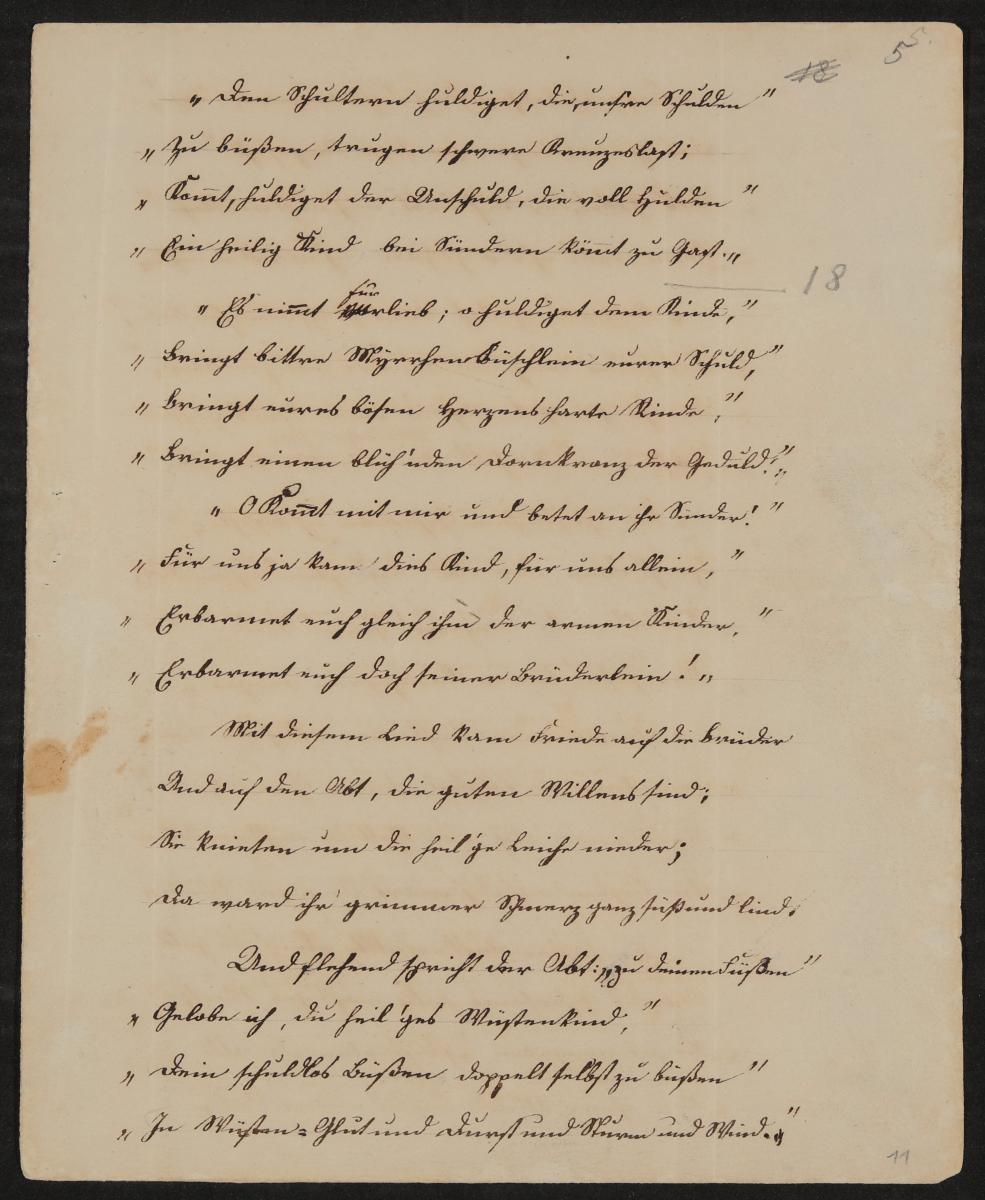 5 5.
18
„ Den Schultern huldiget, die, unsre Schulden "
„ Zu büßen, trugen schwere Kreuzeslast;
„ Kom̄t, huldiget der Unschuld, die voll Hulden "
„ Ein heilig Kind bei Sündern köm̄t zu Gast. „
18
für
„ Es nim̄t verlieb; o huldiget dem Kinde, "
„ Bringt bittre Myrrhen Büschlein eurer Schuld, "
„ Bringt eures bösen Herzens harte Rinde, "
„ Bringt einen blüh'nden Dornkranz der Geduld. "„
„ O Kom̄t mit mir und betet an ihr Sünder! "
„ Für uns ja kam dies Kind, für uns allein, "
„ Erbarmet euch gleich ihm der armen Kinder, "
„ Erbarmet euch doch seiner Brüderlein! „
Mit diesem Lied kam Friede auf die Brüder
Und auf den Abt, die guten Willens sind;
Sie knieten um die heil'ge Leiche nieder;
Da ward ihr grimmer Schmerz ganz süß und lind.
Und flehend spricht der Abt: „zu deinen Füßen "
„ Gelobe ich, du heil'ges Wüstenkind, "
„ Dein schuldlos Büßen doppelt selbst zu büßen "
„ In Wüsten=Glut und Durst und Sturm und Wind. "„
11